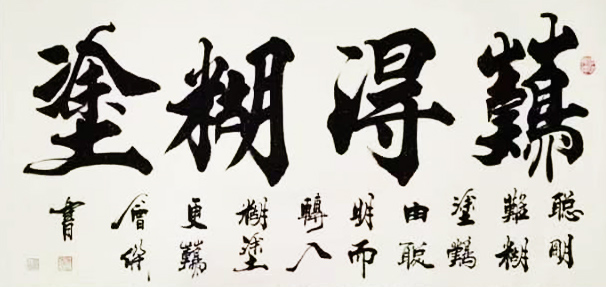 難得糊塗
聰明
難糊
塗難
由聰
明而
轉入
糊塗
更難
書